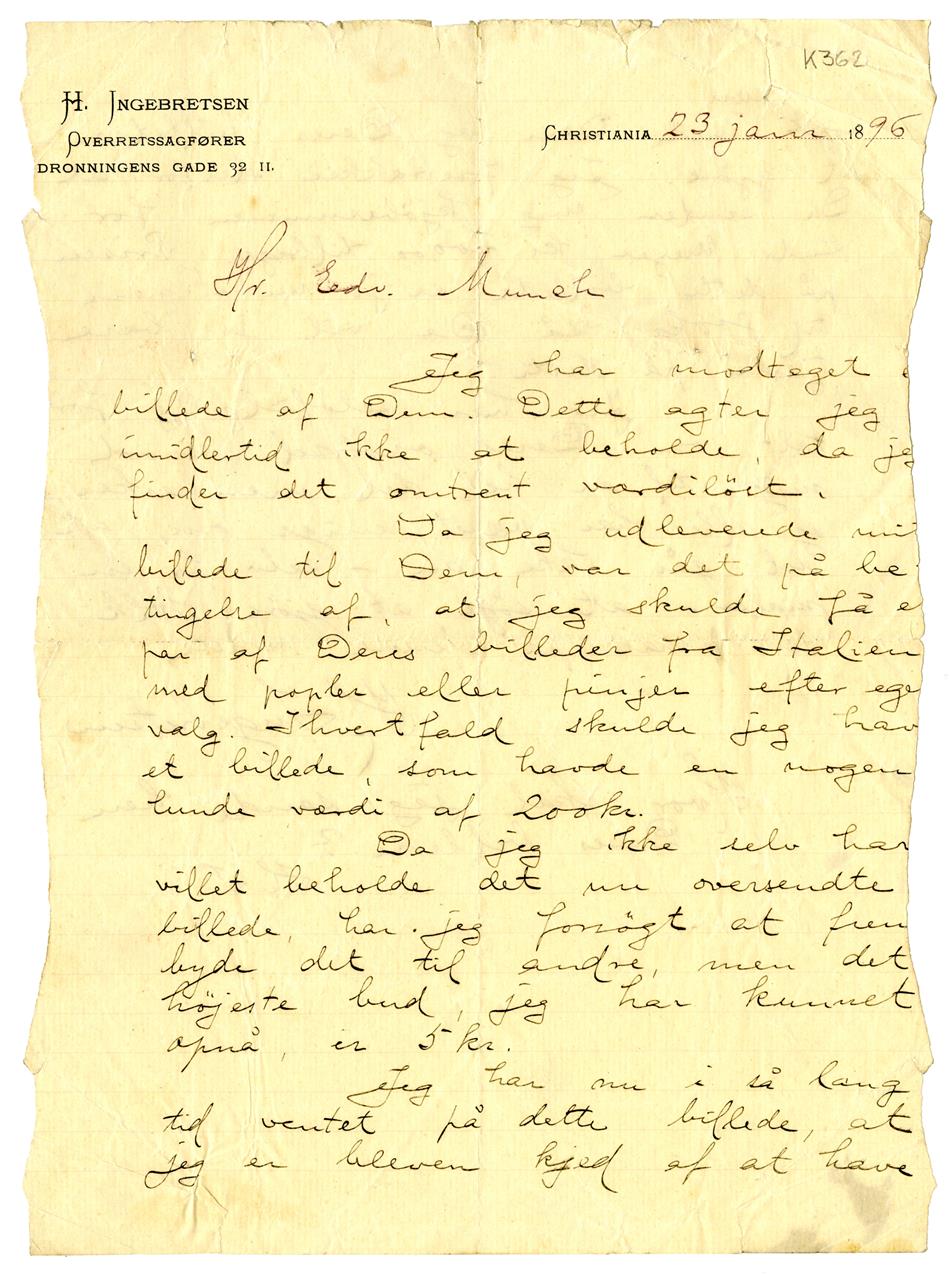 K362
H. INGEBRETSEN
OVERRETSSAGFØRER
DRONNINGENS GADE 32 II.
CHRISTIANIA 23 jan 1896
Hr. Edv. Munch
Jeg har modtaget e
billede af Dem. Dette agter jeg
imidlertid ikke at beholde, da jeg
finder det omtrent værdiløst.
Da jeg udleverede mit
billede til Dem, var det på be-
tingelse af, at jeg skulde få e
par af Deres billeder fra Italien
med popler eller pinjer efter ege
valg. Ihvertfald skulde jeg hav
et billede, som havde en nogen
lunde værdi af 200 kr.
Da jeg ikke selv har
villet beholde det nu oversendte
billede, har jeg forsögt at frem
byde det til andre, men det
höjeste bud, jeg har kunnet
opnå, er 5 kr.
Jeg har nu i så lang
tid ventet på dette billede, at
jeg er bleven kjed af at have